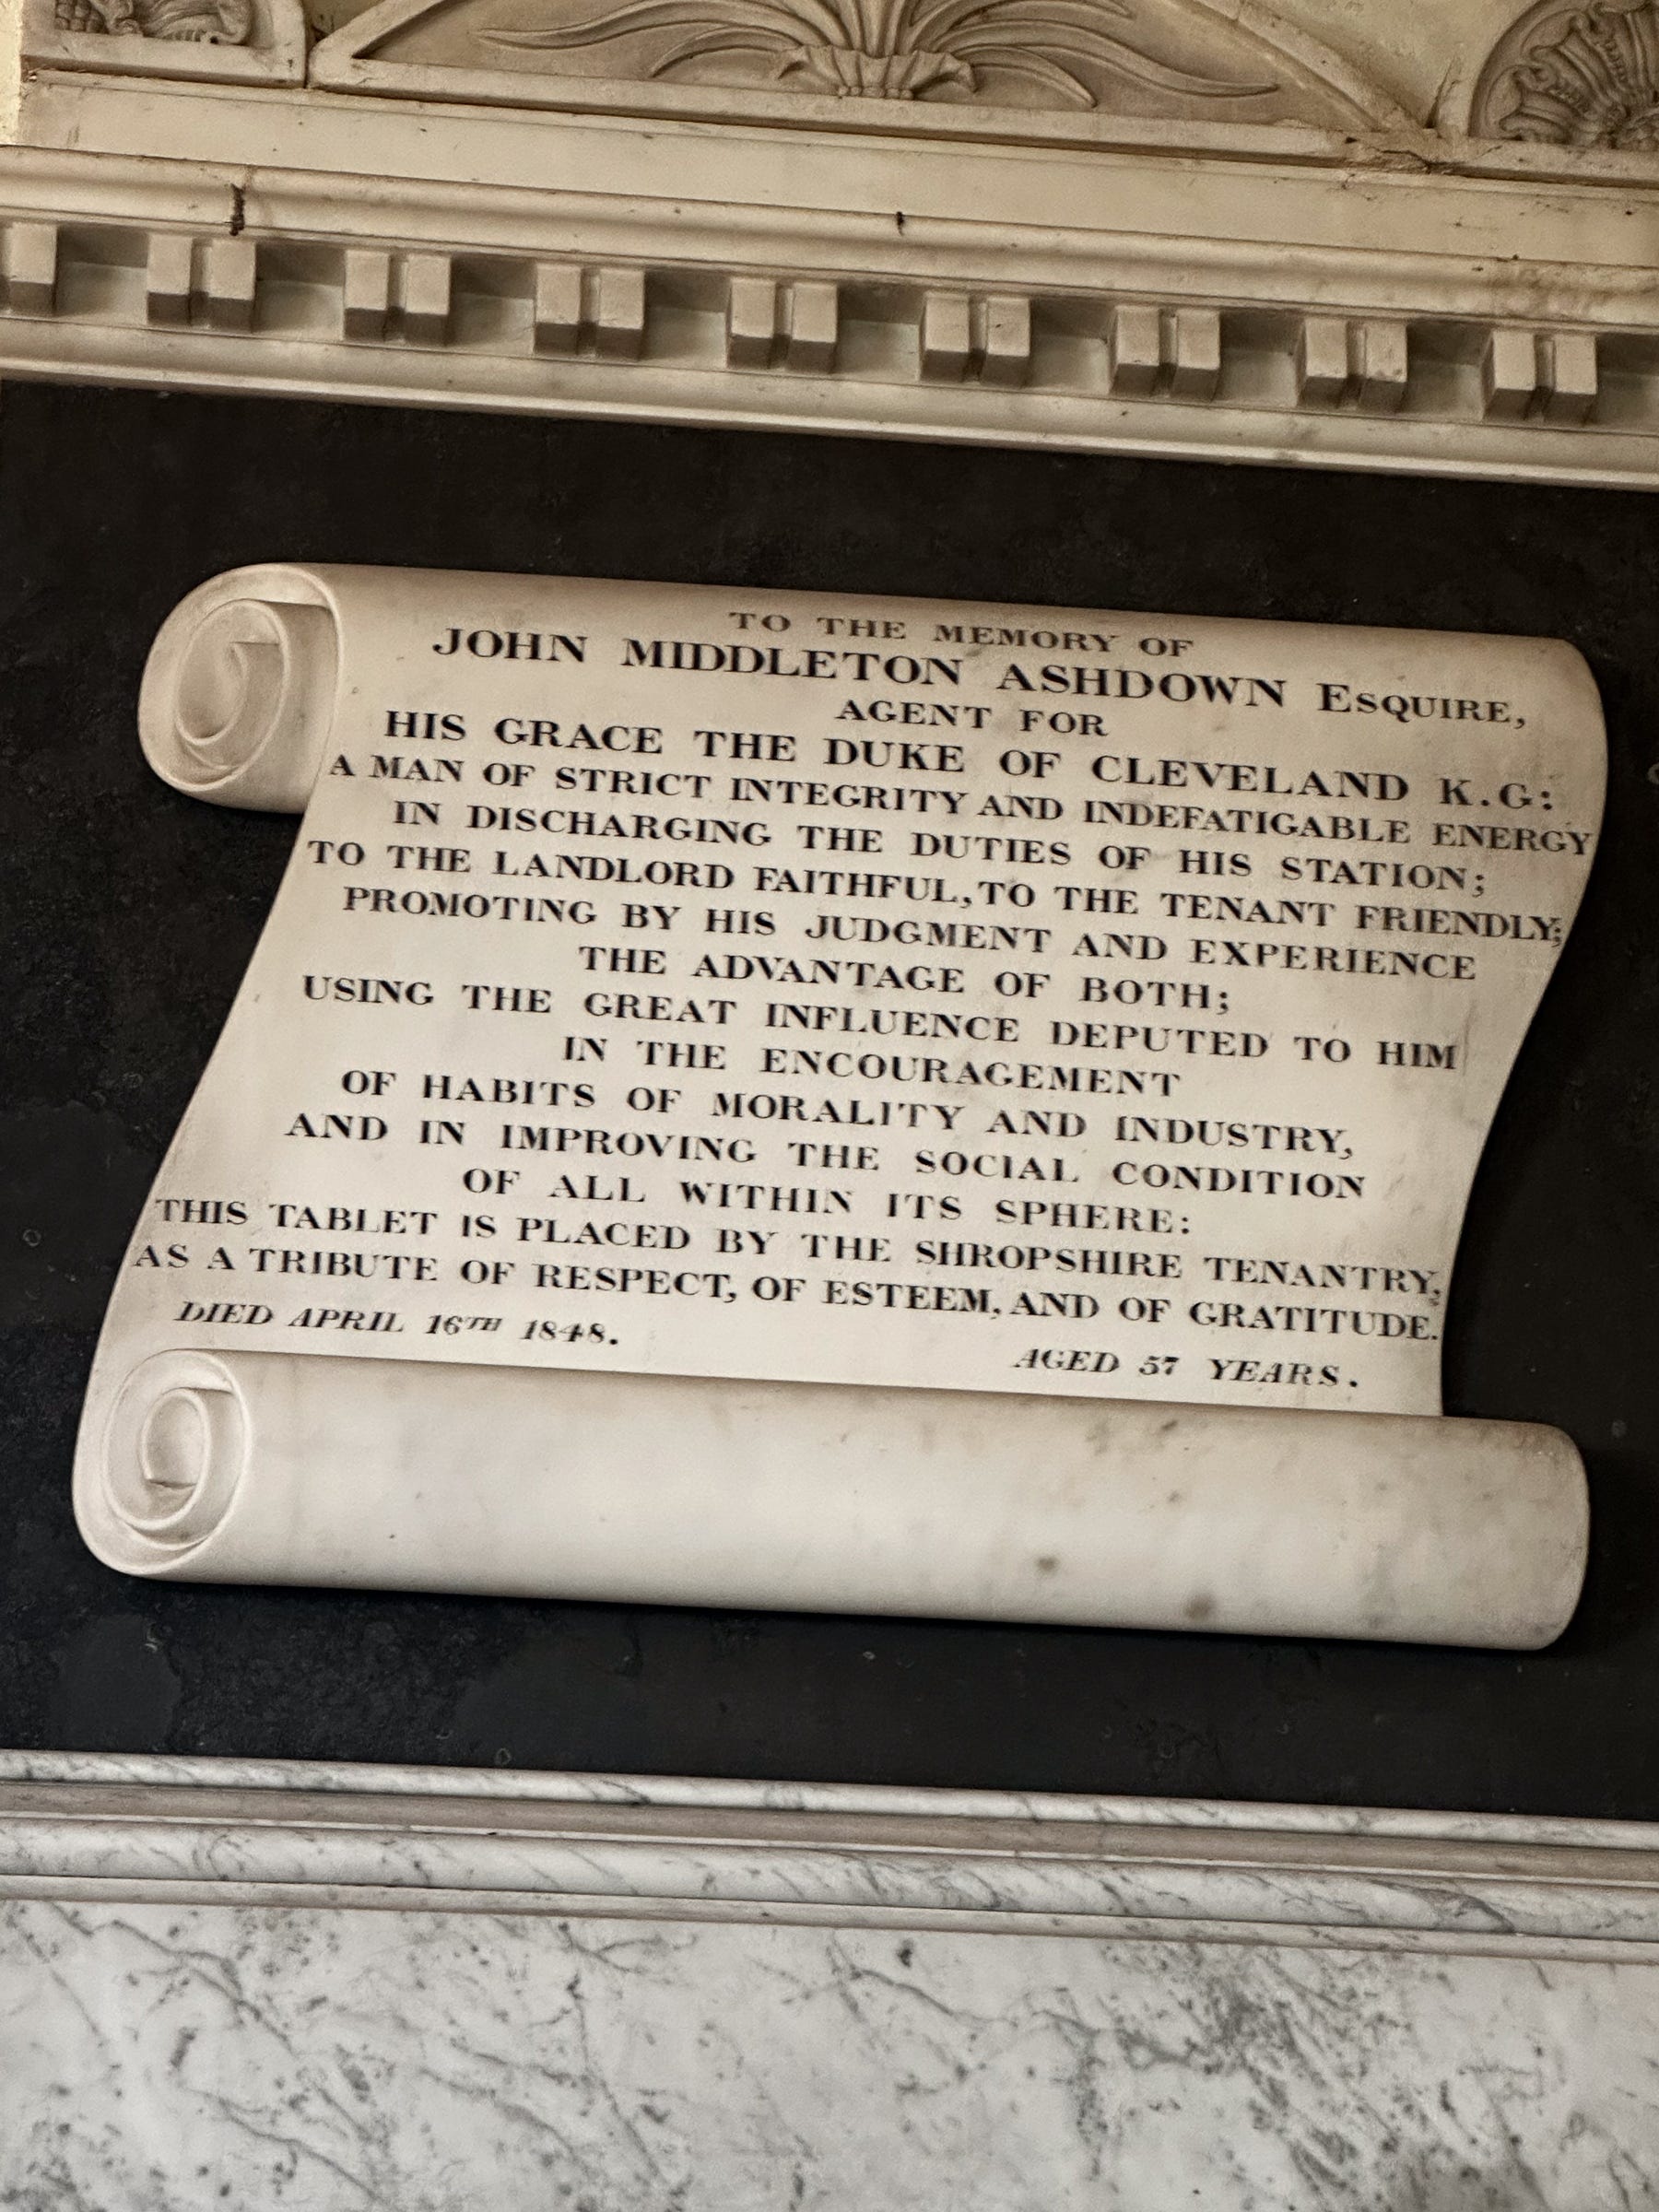 TO THE MEMORY OF
JOHN MIDDLETON ASHDOWN ESQUIRE,
AGENT FOR
HIS GRACE THE DUKE OF CLEVELAND K.G:
A MAN OF STRICT INTEGRITY AND INDEFATIGABLE ENERGY
IN DISCHARGING THE DUTIES OF HIS STATION;
TO THE LANDLORD FAITHFUL, TO THE TENANT FRIENDLY;
PROMOTING BY HIS JUDGMENT AND EXPERIENCE
THE ADVANTAGE OF BOTH;
USING THE GREAT INFLUENCE DEPUTED TO HIM
IN THE ENCOURAGEMENT
OF HABITS OF MORALITY AND INDUSTRY,
AND IN IMPROVING THE SOCIAL CONDITION
OF ALL WITHIN ITS SPHERE:
THIS TABLET IS PLACED BY THE SHROPSHIRE TENANTRY,
AS A TRIBUTE OF RESPECT, OF ESTEEM, AND OF GRATITUDE.
DIED APRIL 16TH 1848.
AGED 57 YEARS.